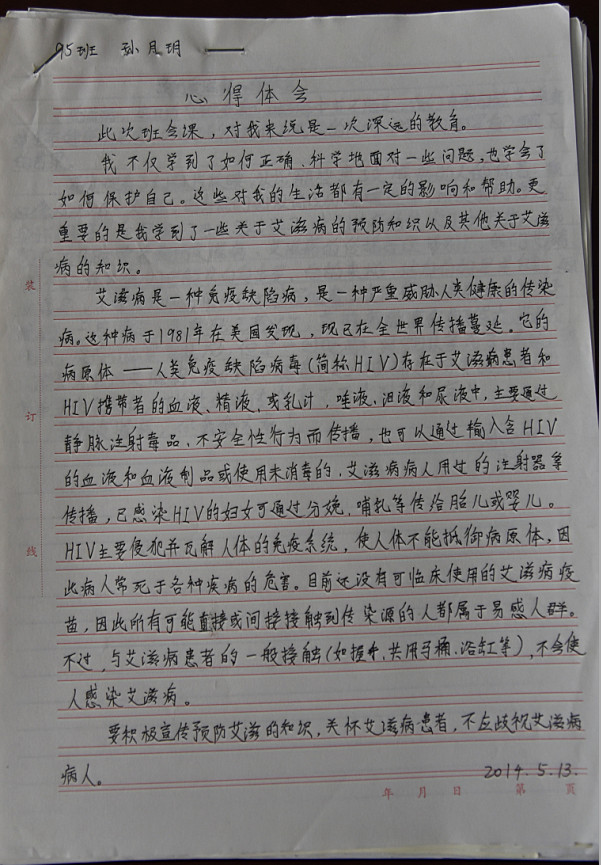 95班 孙月玥
心得体会
此次班会课，对我来说是一次深远的教育。
我不仅学到了如何正确、科学地面对一些问题，也学会了
如何保护自己。这些对我的生活都有一定的影响和帮助。更
重要的是我学到了一些关于艾滋病的预防知识以及其他关于艾滋
病的知识。
艾滋病是一种免疫缺陷病，是一种严重威胁人类健康的传染
病。这种病于1981年在美国发现，现已在全世界传播蔓延。它的
病原体——人类免疫缺陷病毒(简称HIV)存在于艾滋病患者和
HIV携带者的血液、精液、或乳汁、唾液、泪液和尿液中，主要通过
静脉注射毒品、不安全性行为而传播，也可以通过输入含HIV
的血液和血液制品或使用未消毒的，艾滋病病人用过的注射器等
传播，已感染HIV的妇女可通过分娩、哺乳等传给胎儿或婴儿。
HIV主要侵犯并瓦解人体的免疫系统，使人体不能抵御病原体，因
此病人常死于各种疾病的危害。目前还没有可临床使用的艾滋病疫
苗，因此所有可能直接或间接接触到传染源的人都属于易感人群。
不过，与艾滋病患者的一般接触(如握手、共用马桶、浴缸等)，不会使
人感染艾滋病。
要积极宣传预防艾滋的知识，关怀艾滋病患者，不应歧视艾滋病
病人。
2014.5.13.
年 月 日 第 页
装
订
线